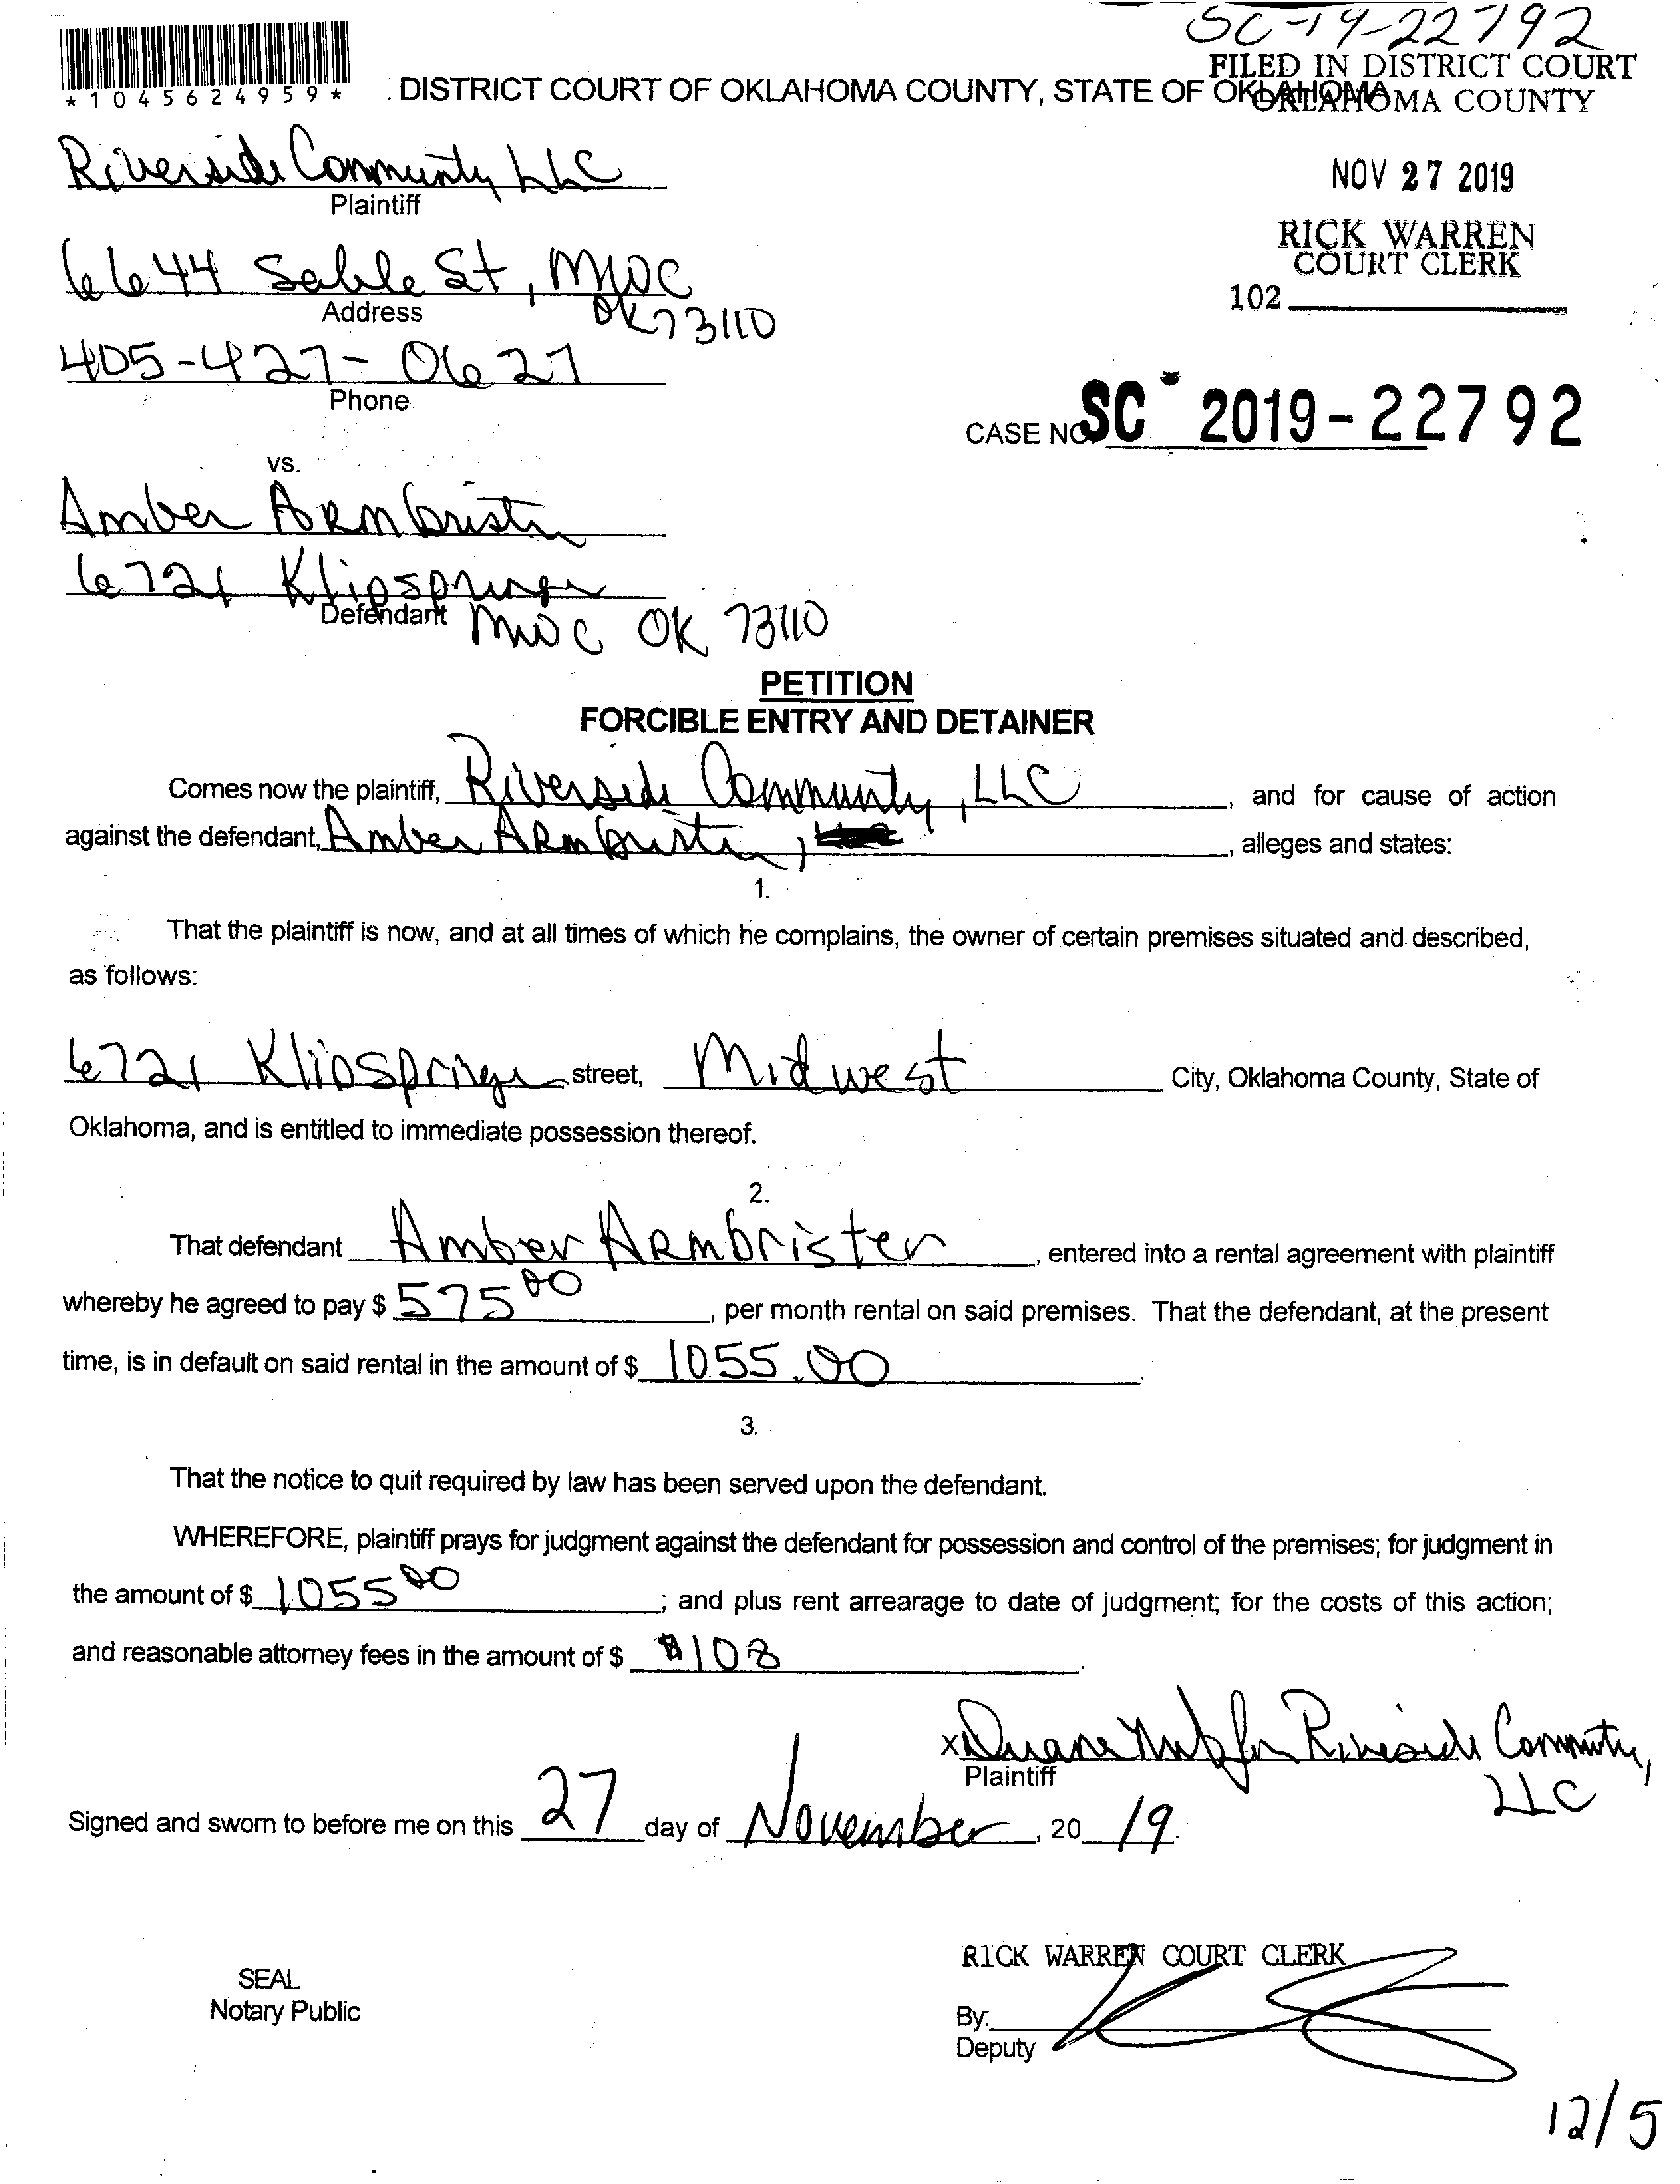 SC-19-22792
FILED IN DISTRICT COURT
OKLAHOMA COUNTY
*1045624959*
DISTRICT COURT OF OKLAHOMA COUNTY, STATE OF OKLAHOMA
Riverside Community LLC
Plaintiff
NOV 27 2019
RICK WARREN
COURT CLERK
102
6644 Sable St, MWC
Address
OK 73110
405-427-0627
Phone
CASE NO SC 2019-22792
vs.
Amber Armbrister
6721 Klipspringer
Defendant MWC OK 73110
PETITION
FORCIBLE ENTRY AND DETAINER
Comes now the plaintiff, Riverside Community, LLC, and for cause of action
against the defendant, Amber Armbrister, , alleges and states:
1.
That the plaintiff is now, and at all times of which he complains, the owner of certain premises situated and described,
as follows:
6721 Klipspringer street, Midwest City, Oklahoma County, State of
Oklahoma, and is entitled to immediate possession thereof.
2.
That defendant Amber Armbrister, entered into a rental agreement with plaintiff
whereby he agreed to pay $ 575 00, per month rental on said premises. That the defendant, at the present
time, is in default on said rental in the amount of $ 1055.00.
3.
That the notice to quit required by law has been served upon the defendant.
WHEREFORE, plaintiff prays for judgment against the defendant for possession and control of the premises; for judgment in
the amount of $ 1055 00; and plus rent arrearage to date of judgment; for the costs of this action;
and reasonable attorney fees in the amount of $ $108.
x Duane for Riverside Community,
Plaintiff
LLC
Signed and sworn to before me on this 27 day of November, 20 19.
RICK WARREN COURT CLERK
SEAL
Notary Public
By:
Deputy
12/5